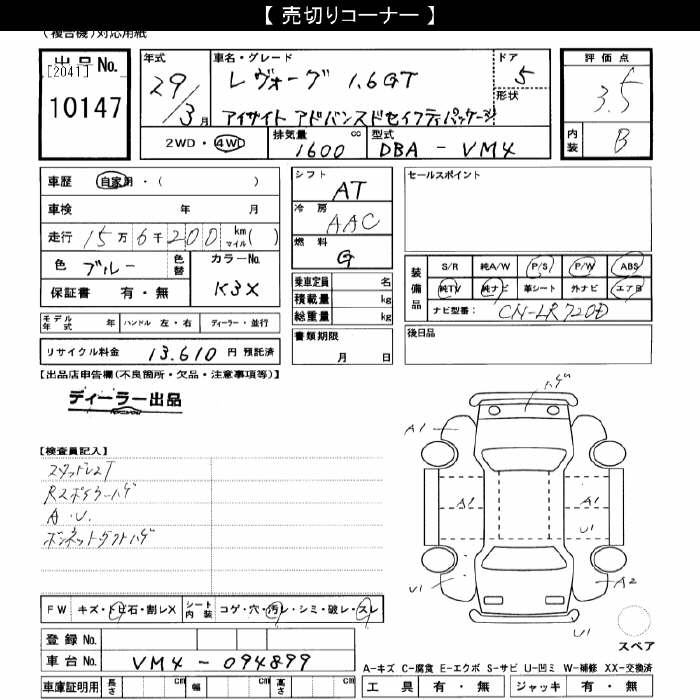 【 売切りコーナー 】
(複合機)対応用紙
出品 No.
[2041]
10147
年式
29/3月
車名・グレード
レヴォーグ 1.6GT
アイサイト アドバンスドセイフティパッケージ
ドア
5
形状
評価点
3.5
内装
B
2WD・4WD
排気量 cc
1600
型式
DBA - VM4
車歴 自家用・( )
車検 年 月
走行 15万6千200 km マイル( )
色 ブルー
色替
カラーNo.
K3X
保証書 有・無
シフト
AT
冷房
AAC
燃料
G
乗車定員 名
積載量 kg
総重量 kg
セールスポイント
装備品
S/R 純A/W P/S P/W ABS
純TV 純ナビ 革シート 外ナビ エアB
ナビ型番: CN-LR720D
モデル年式 年 ハンドル 左・右 ディーラー・並行
リサイクル料金 13.610 円 預託済
書類期限
月 日
後日品
【出品店申告欄(不良箇所・欠品・注意事項等)】
ディーラー出品
【検査員記入】
スタッドレスT
Rスポイラーハゲ
A.U.
ボンネットダクトハゲ
ハゲ
A1
A1
A1
U1
U1
A2
U1
スペア
FW キズ・トビ石・割レX
シート内装 コゲ・穴・汚レ・シミ・破レ・スレ
登録 No.
車台 No. VM4 - 094899
車庫証明用 長さ cm 幅 cm 高さ cm
A-キズ C-腐食 E-エクボ S-サビ U-凹ミ W-補修 XX-交換済
工具 有・無 ジャッキ 有・無